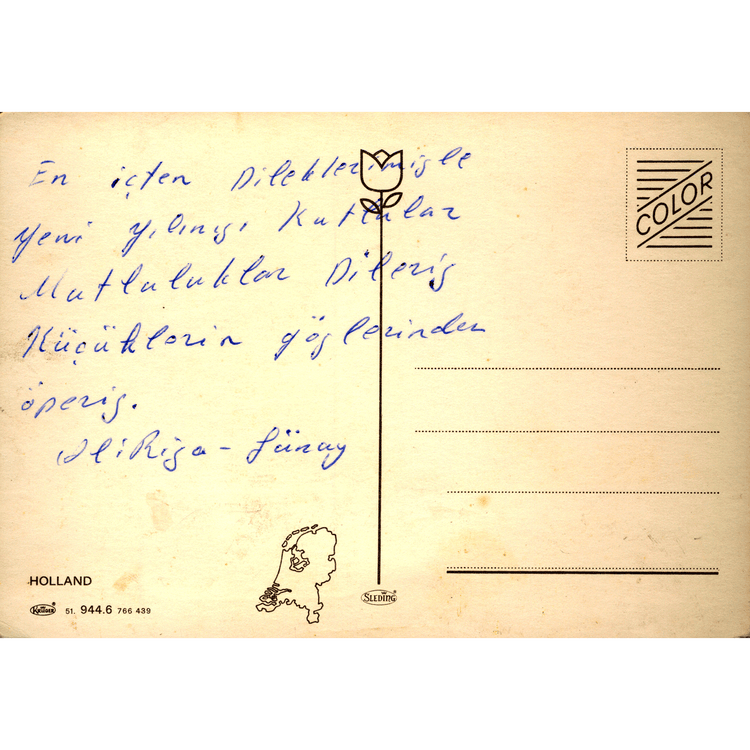 En içten Dileklerimizle
Yeni yılınızı Kutlular
Mutluluklar Dileriz
Küçüklerin gözlerinden
öperiz.
Ali Riza - Günay
COLOR
HOLLAND
KRÜGER
51. 944.6 766 439
SLEDING